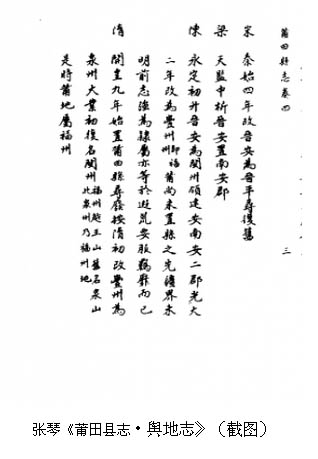 莆田縣志 卷四 三
宋 泰始四年改晉安為晉平尋復舊
梁 天監中析晉安置南安郡
陳 永定初升晉安為閩州領建安南安二郡光大
二年改為豐州即福州莆尚未置縣之先疆界未
明前志強為隸屬亦等於遐荒要服羈縻而已
隋 開皇九年始置莆田縣尋廢按隋初改豐州為
泉州大業初復名閩州福州越王山舊名泉山此泉州乃福州地
是時莆地屬福州
张琴《莆田县志·舆地志》（截图）